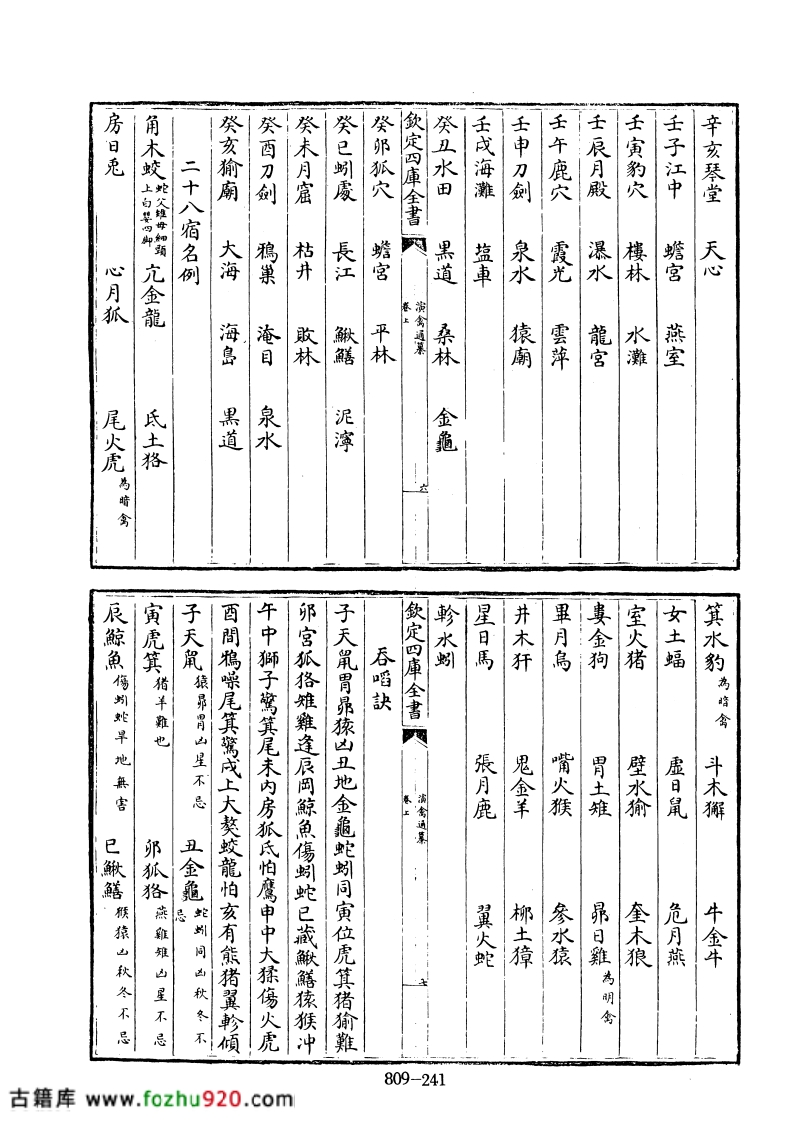 辛亥琴堂 天心
壬子江中 蟾宮 燕室
壬寅豹穴 樓林 水灘
壬辰月殿 瀑水 龍宮
壬午鹿穴 霞光 雲萍
壬申刀劍 泉水 猿廟
壬戌海灘 塩車
癸丑水田 黒道 桑林 金龜
欽定四庫全書 演禽通纂 卷上 六
癸卯狐穴 蟾宮 平林
癸巳蚓處 長江 鰍鱔 泥濘
癸未月窟 枯井 敗林
癸酉刀劍 鴉巢 淹目 泉水
癸亥㺄廟 大海 海島 黒道
二十八宿名例
角木蛟 蛇父雉母細頸上白嬰四脚 亢金龍 氐土狢
房日兎 心月狐 尾火虎 為暗禽
箕水豹 為暗禽 斗木獬 牛金牛
女土蝠 虛日鼠 危月燕
室火猪 壁水㺄 奎木狼
婁金狗 胃土雉 昴日雞 為明禽
畢月烏 嘴火猴 參水猿
井木犴 鬼金羊 柳土獐
星日馬 張月鹿 翼火蛇
軫水蚓
欽定四庫全書 演禽通纂 卷上 七
吞啗訣
子天鼠胃昴猿凶丑地金龜蛇蚓同寅位虎箕猪㺄難
卯宮狐狢雉雞逢辰岡鯨魚傷蚓蛇巳藏鰍鱔猿猴冲
午中獅子驚箕尾未内房狐氐怕鷹申中大猱傷火虎
酉間鴉噪尾箕驚戌上大獒蛟龍怕亥有熊猪翼軫傾
子天鼠 猿昴胃凶星不忌 丑金龜 蛇蚓同凶秋冬不忌
寅虎箕 猪羊難也 卯狐狢 燕雞雉凶星不忌
辰鯨魚 傷蚓蛇旱地無害 巳鰍鱔 猴猿凶秋冬不忌
809-241
古籍库 www.fozhu920.com